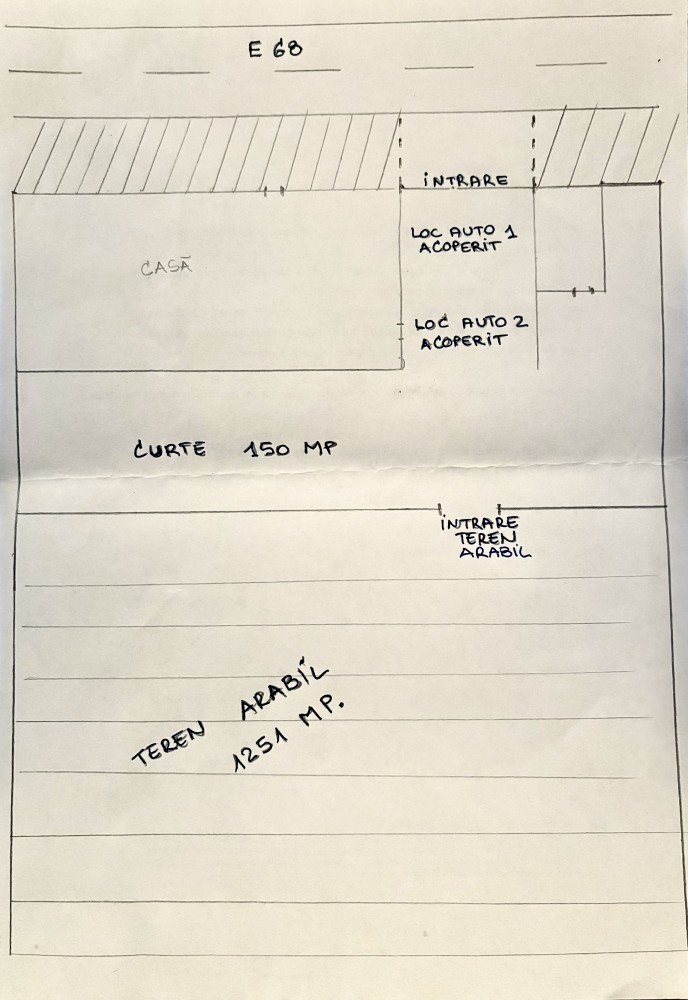 E 68
INTRARE
LOC AUTO 1
ACOPERIT
CASĂ
LOC AUTO 2
ACOPERIT
CURTE 150 MP
INTRARE
TEREN
ARABIL
TEREN ARABIL
1251 MP.